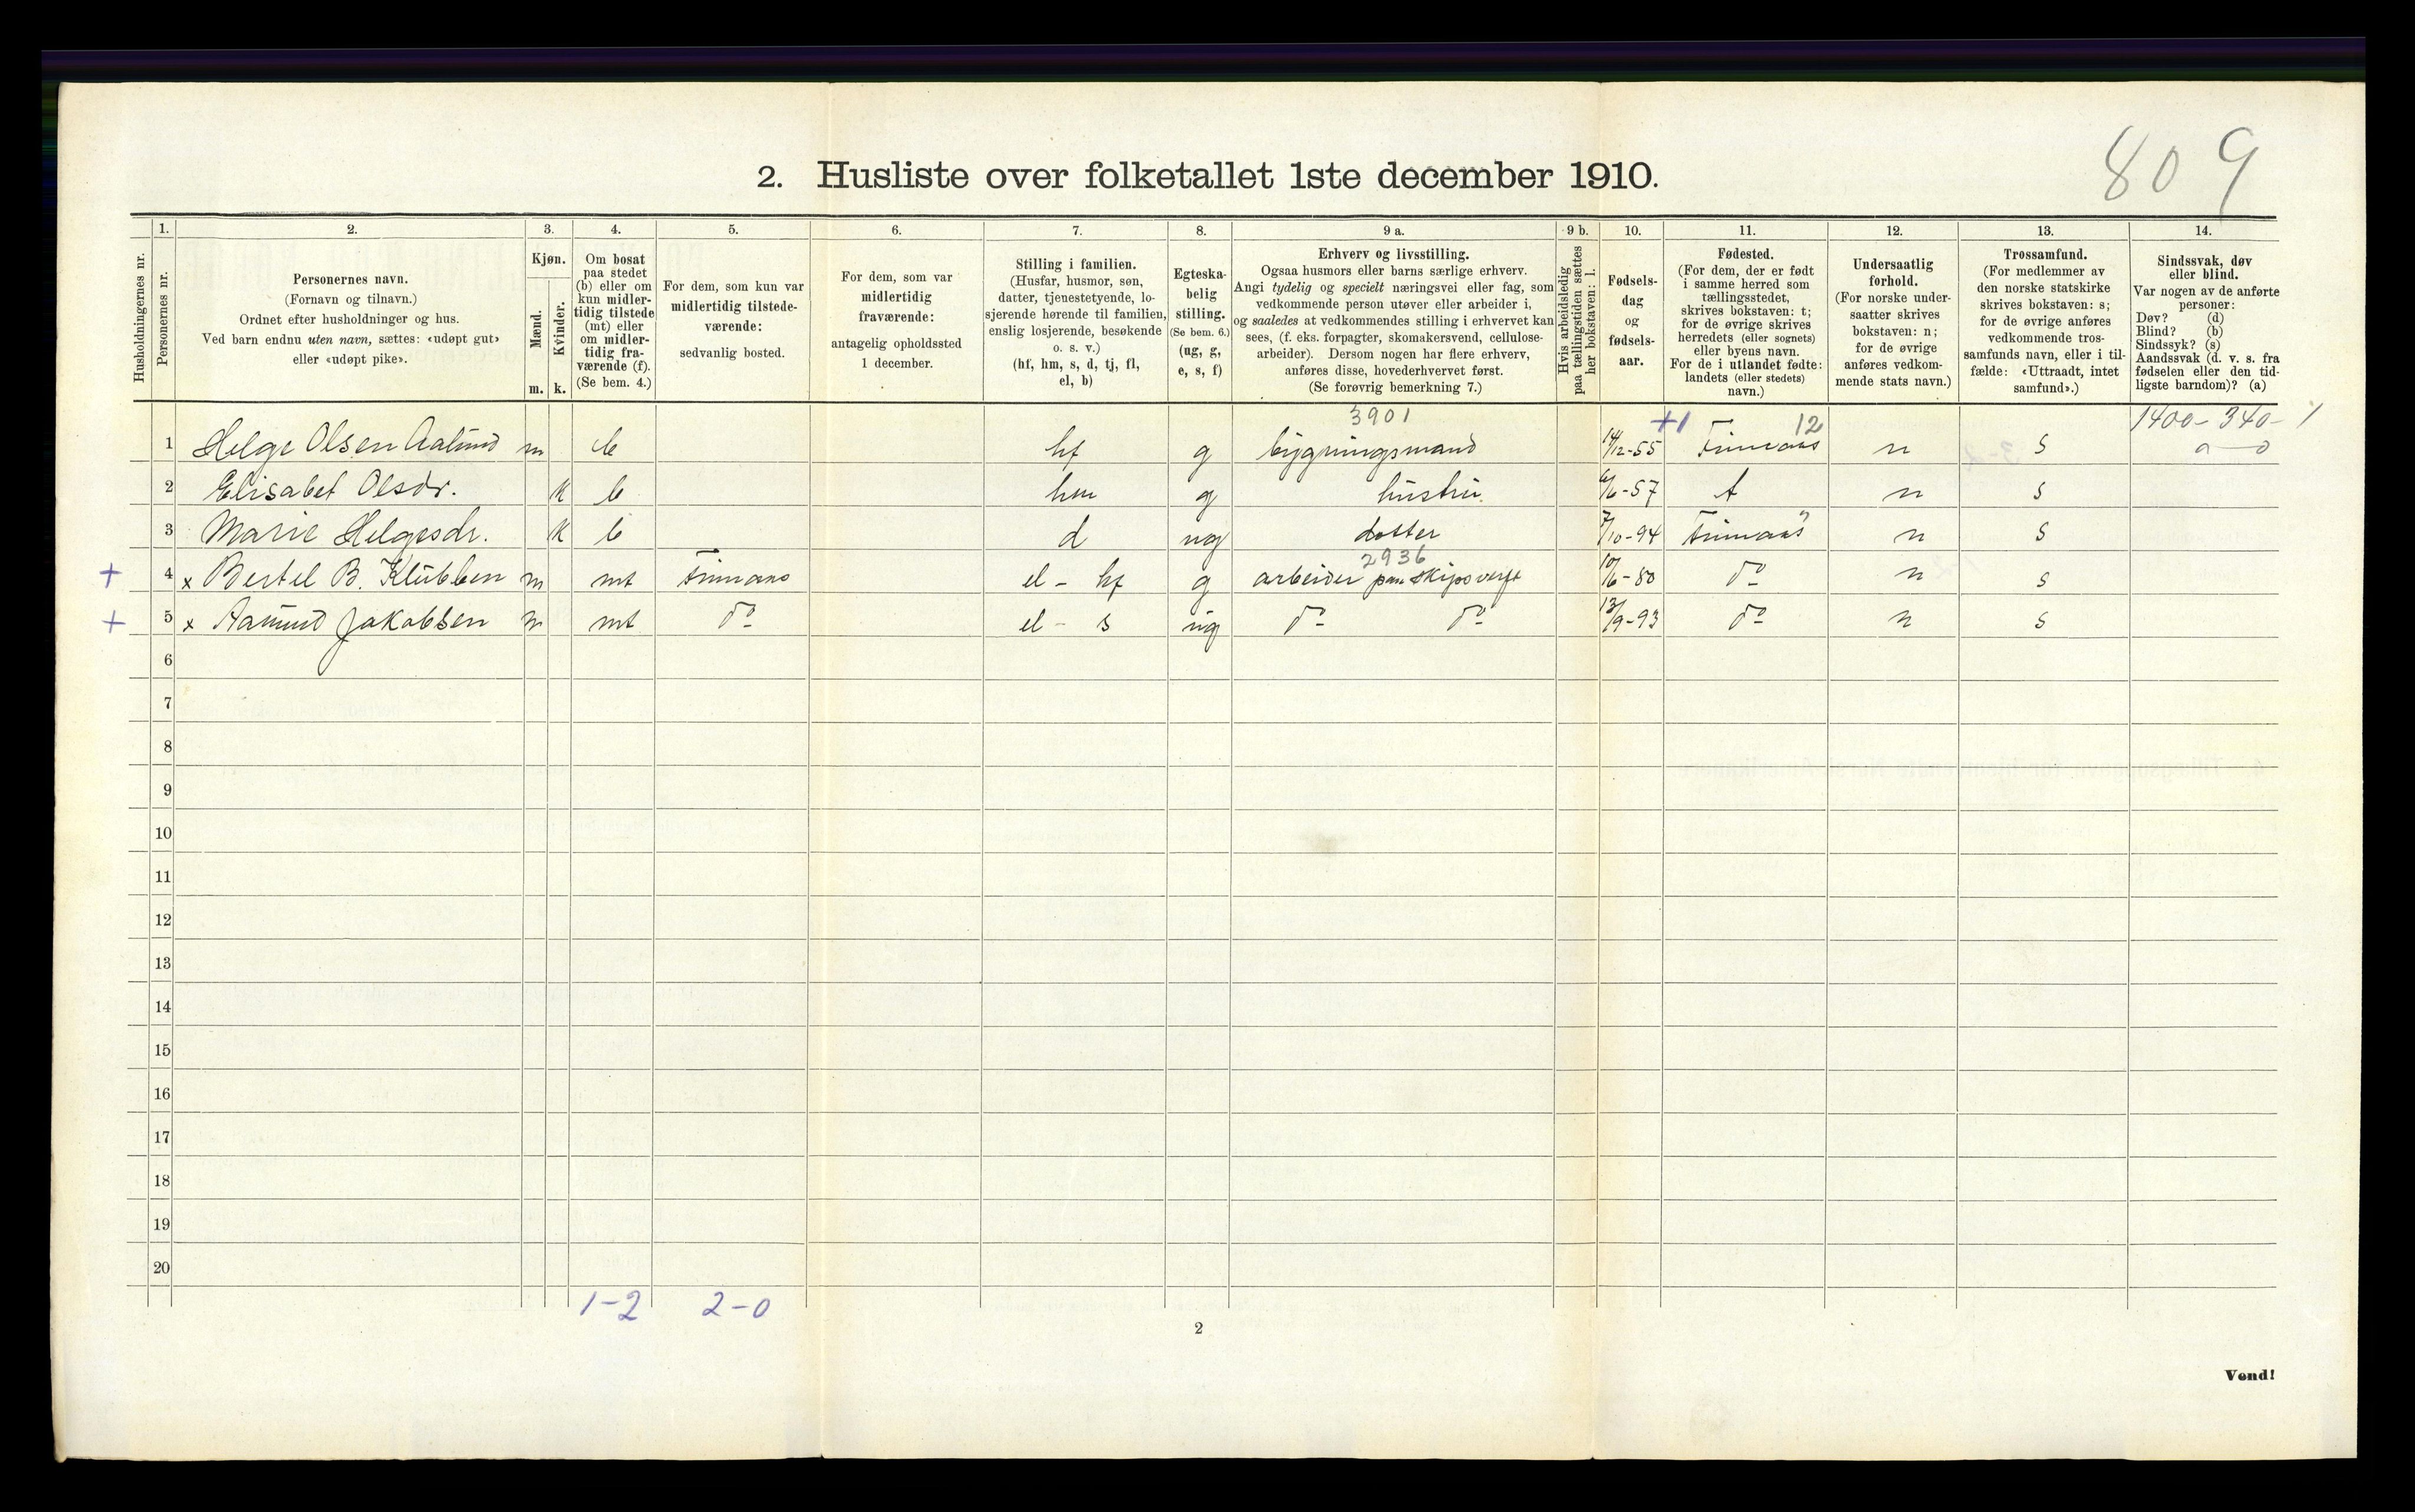 809
2. Husliste over folketallet 1ste december 1910.
1. 2. 3. 4. 5. 6. 7. 8. 9 a. 9 b. 10. 11. 12. 13. 14.
Husholdningernes nr.
Personernes nr.
Personernes navn.
(Fornavn og tilnavn.)
Ordnet efter husholdninger og hus.
Ved barn endnu uten navn, sættes: «udøpt gut»
eller «udøpt pike».
Kjøn.
Mænd.
Kvinder.
m. k.
Om bosat
paa stedet
(b) eller om
kun midler-
tidig tilstede
(mt) eller
om midler-
tidig fra-
værende (f).
(Se bem. 4.)
For dem, som kun var
midlertidig tilstede-
værende:
sedvanlig bosted.
For dem, som var
midlertidig
fraværende:
antagelig opholdssted
1 december.
Stilling i familien.
(Husfar, husmor, søn,
datter, tjenestetyende, lo-
sjerende hørende til familien,
enslig losjerende, besøkende
o. s. v.)
(hf, hm, s, d, tj, fl,
el, b)
Egteska-
belig
stilling.
(Se bem. 6.)
(ug, g,
e, s, f)
Erhverv og livsstilling.
Ogsaa husmors eller barns særlige erhverv.
Angi tydelig og specielt næringsvei eller fag, som
vedkommende person utøver eller arbeider i,
og saaledes at vedkommendes stilling i erhvervet kan
sees, (f. eks. forpagter, skomakersvend, cellulose-
arbeider). Dersom nogen har flere erhverv,
anføres disse, hovederhvervet først.
(Se forøvrig bemerkning 7.)
Hvis arbeidsledig
paa tællingstiden sættes
her bokstaven: l.
Fødsels-
dag
og
fødsels-
aar.
Fødested.
(For dem, der er født
i samme herred som
tællingsstedet,
skrives bokstaven: t;
for de øvrige skrives
herredets (eller sognets)
eller byens navn.
For de i utlandet fødte:
landets (eller stedets)
navn.)
Undersaatlig
forhold.
(For norske under-
saatter skrives
bokstaven: n;
for de øvrige
anføres vedkom-
mende stats navn.)
Trossamfund.
(For medlemmer av
den norske statskirke
skrives bokstaven: s;
for de øvrige anføres
vedkommende tros-
samfunds navn, eller i til-
fælde: «Uttraadt, intet
samfund».)
Sindssvak, døv
eller blind.
Var nogen av de anførte
personer:
Døv? (d)
Blind? (b)
Sindssyk? (s)
Aandssvak (d. v. s. fra
fødselen eller den tid-
ligste barndom)? (a)
3901 +1 12 1400-340-1
1 Helge Olsen Aalund m b hf g bygningsmand 14/12-55 Finnaas n s a-o
2 Elisabet Olsdr. k b hm g hustru 6/6-57 t n s
3 Marie Helgesdr. k b d ug dotter 7/10-94 Finnaas n s
2936
+ 4 x Bertel B. Klubben m mt Finnaas el - hf g arbeider paa skipsverft 10/6-80 do n s
+ 5 x Aamund Jakobsen m mt do el - s ug do do 13/9-93 do n s
6
7
8
9
10
11
12
13
14
15
16
17
18
19
20
1-2 2-0
2
Vend!